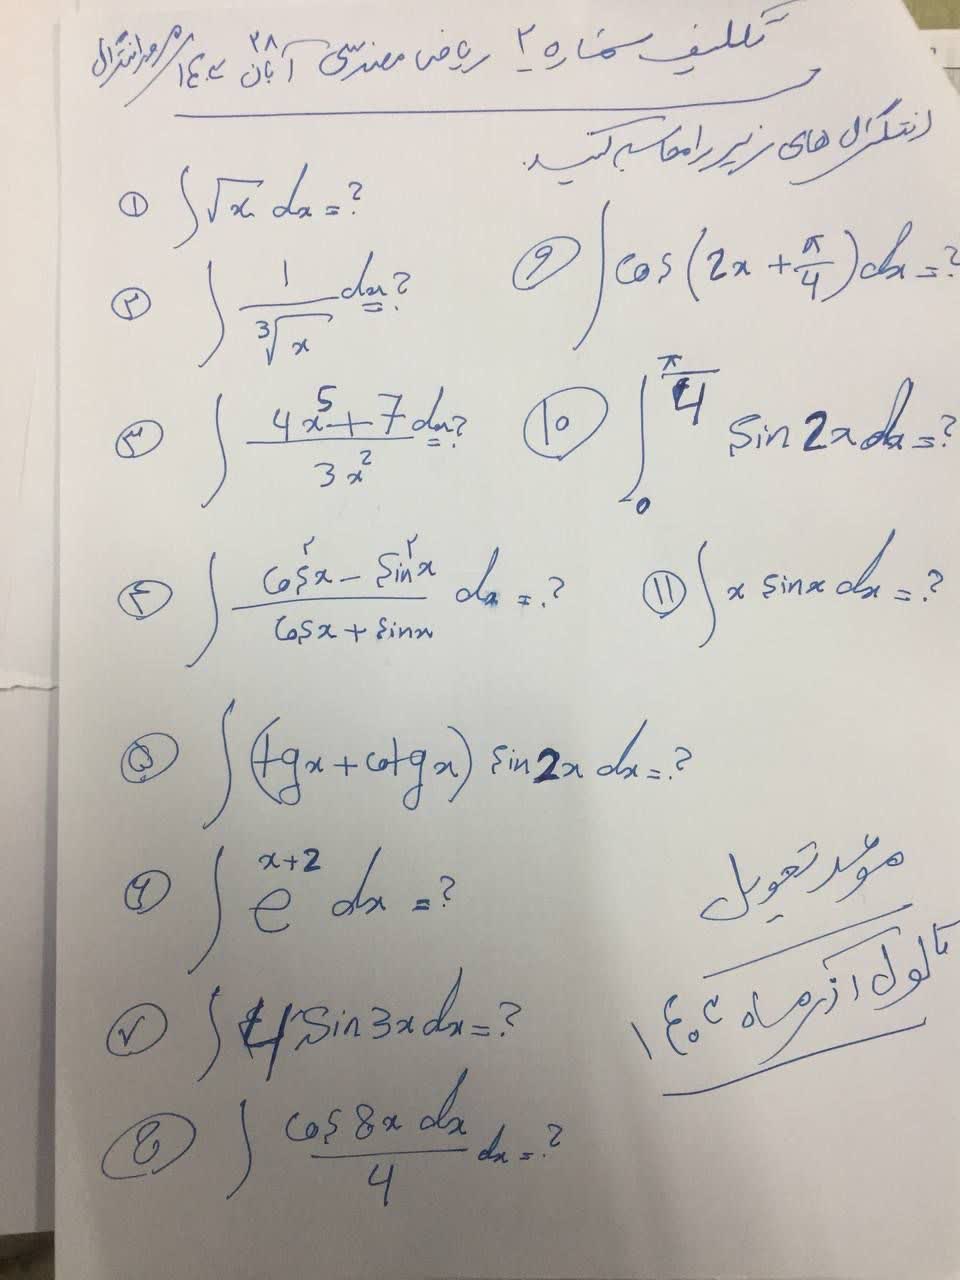 تکلیف شماره ۲ ریاضی مهندسی ۲۸ آبان ۱۴۰۲
انتگرال های زیر را محاسبه کنید.
① ∫ √x dx = ?
② ∫ 1/∛x dx = ?
③ ∫ (4x⁵ + 7)/(3x²) dx = ?
④ ∫ (cos²x − sin²x)/(cosx + sinx) dx = ?
⑤ ∫ (tgx + cotgx) sin2x dx = ?
⑥ ∫ e^(x+2) dx = ?
⑦ ∫ 4 sin3x dx = ?
⑧ ∫ (cos8x dx)/4 dx = ?
⑨ ∫ cos(2x + π/4) dx = ?
⑩ ∫₀^(π/4) sin2x dx = ?
⑪ ∫ x sinx dx = ?
موعد تحویل
تا اول آذرماه ۱۴۰۲